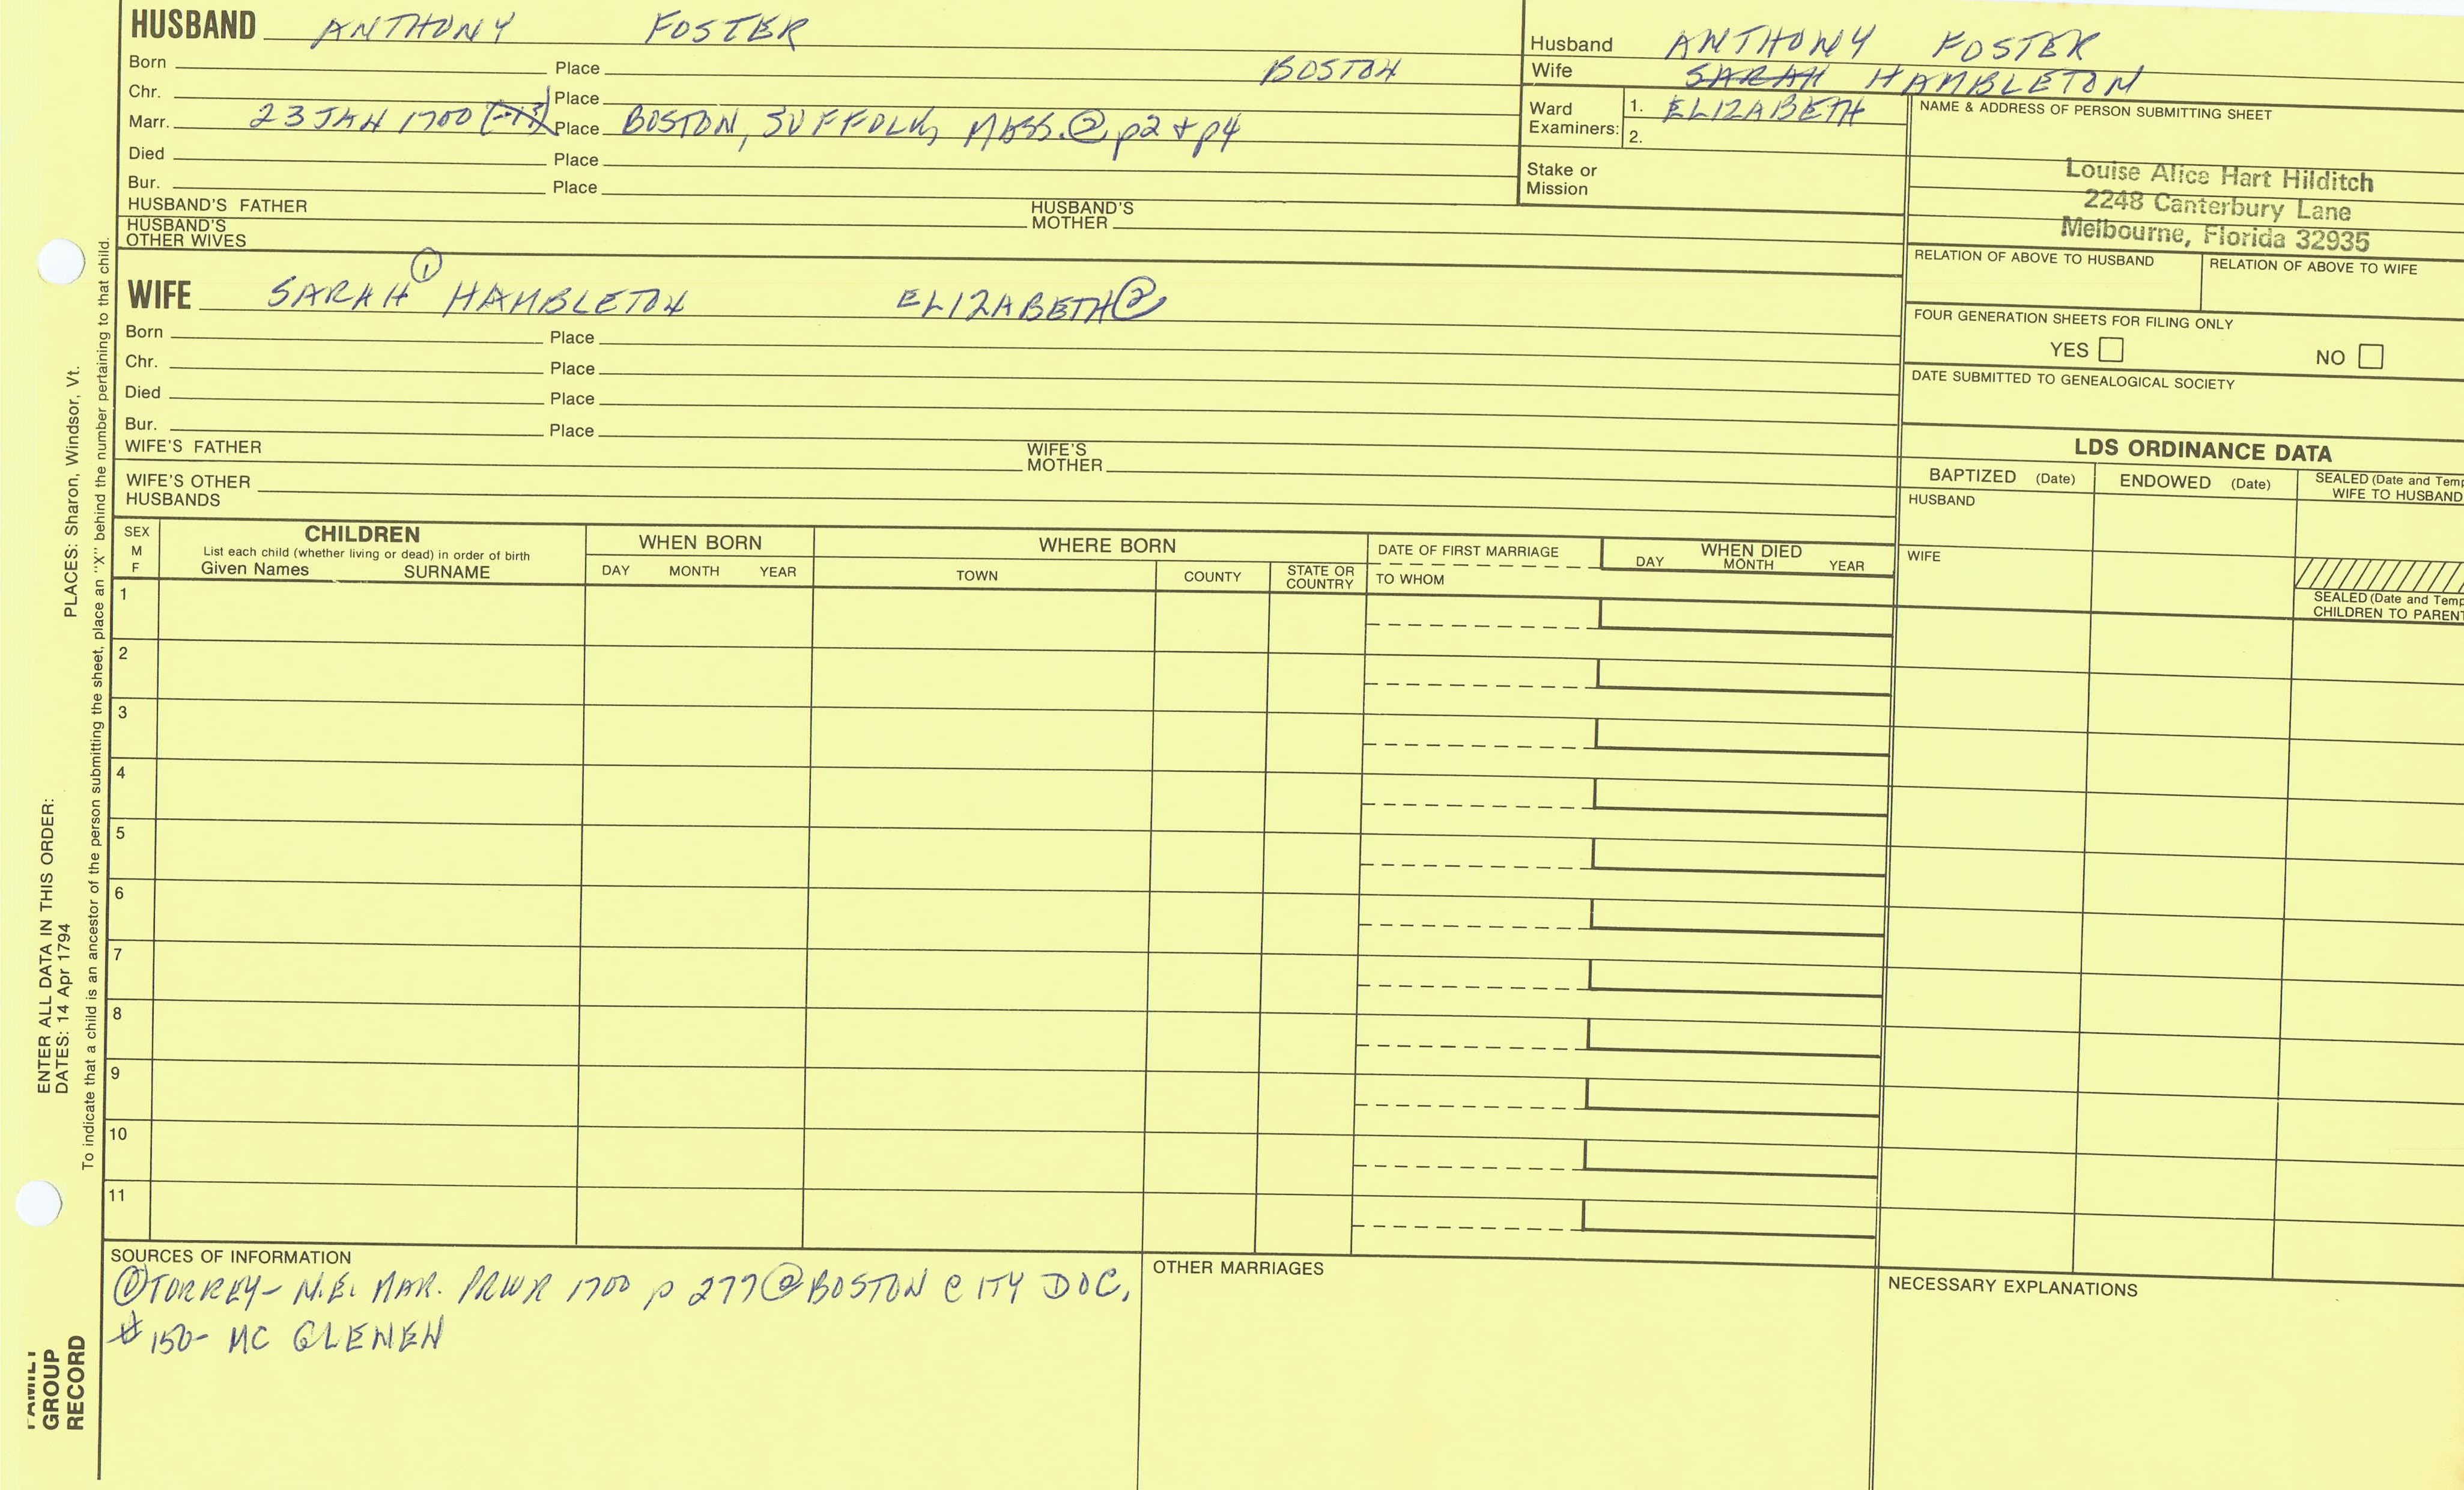 HUSBAND ANTHONY FOSTER
Born Place BOSTON
Chr. Place
Marr. 23 JAN 1700 Place BOSTON, SUFFOLK, MASS. ② p2 + p4
Died Place
Bur. Place
HUSBAND'S FATHER HUSBAND'S MOTHER
HUSBAND'S OTHER WIVES
WIFE SARAH ① HAMBLETON ELIZABETH ②
Born Place
Chr. Place
Died Place
Bur. Place
WIFE'S FATHER WIFE'S MOTHER
WIFE'S OTHER HUSBANDS
Husband ANTHONY FOSTER
Wife SARAH HAMBLETON
Ward Examiners: 1. ELIZABETH
2.
Stake or Mission
NAME & ADDRESS OF PERSON SUBMITTING SHEET
Louise Alice Hart Hilditch
2248 Canterbury Lane
Melbourne, Florida 32935
RELATION OF ABOVE TO HUSBAND RELATION OF ABOVE TO WIFE
FOUR GENERATION SHEETS FOR FILING ONLY
YES NO
DATE SUBMITTED TO GENEALOGICAL SOCIETY
LDS ORDINANCE DATA
BAPTIZED (Date) ENDOWED (Date) SEALED (Date and Temp
WIFE TO HUSBAND
HUSBAND
WIFE
SEALED (Date and Temp
CHILDREN TO PARENT
SEX M F
CHILDREN
List each child (whether living or dead) in order of birth
Given Names SURNAME
WHEN BORN
DAY MONTH YEAR
WHERE BORN
TOWN COUNTY STATE OR COUNTRY
DATE OF FIRST MARRIAGE
TO WHOM
WHEN DIED
DAY MONTH YEAR
1
2
3
4
5
6
7
8
9
10
11
SOURCES OF INFORMATION
① TORREY- N.E. MAR. PRIOR 1700 p 277 ② BOSTON CITY DOC,
# 150- MC GLENEN
OTHER MARRIAGES
NECESSARY EXPLANATIONS
PLACES: Sharon, Windsor, Vt.
ENTER ALL DATA IN THIS ORDER:
DATES: 14 Apr 1794
To indicate that a child is an ancestor of the person submitting the sheet, place an "X" behind the number pertaining to that child.
FAMILY
GROUP
RECORD